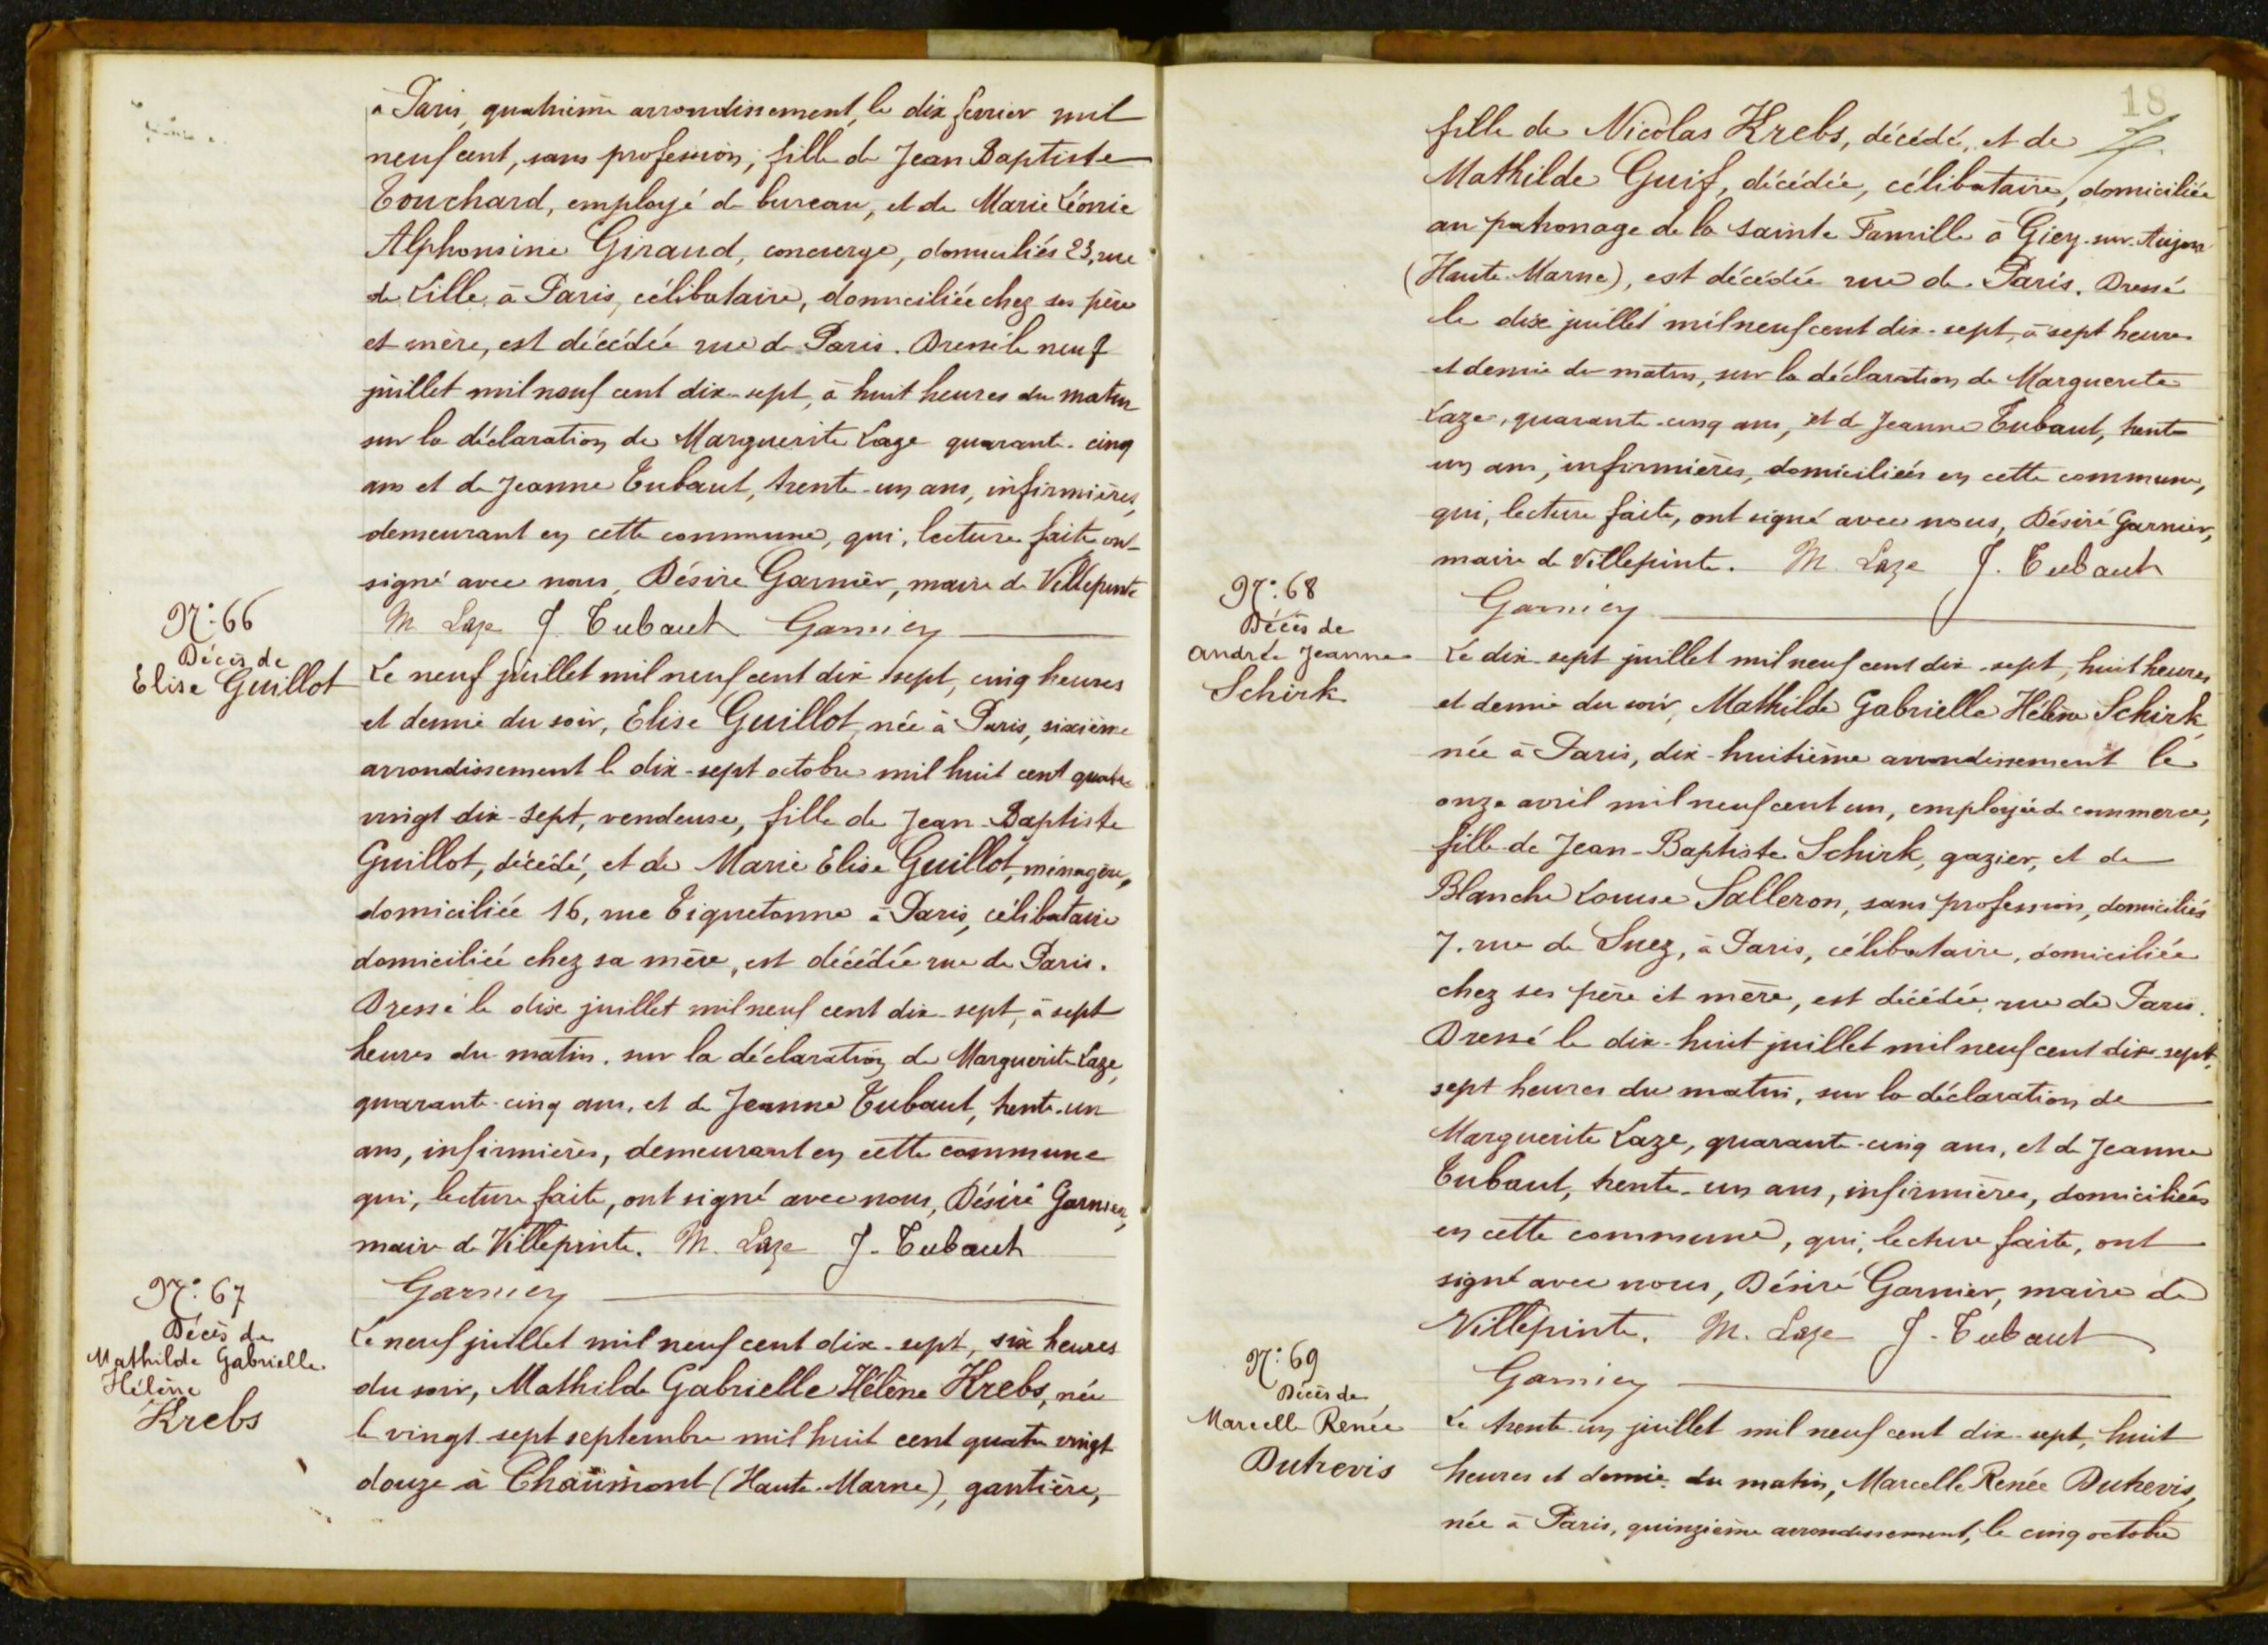 à Paris, quatrième arrondissement, le dix février mil
neuf cent, sans profession, fille de Jean Baptiste
Touchard, employé de bureau, et de Marie Léonie
Alphonsine Giraud, concierge, domiciliés 23, rue
de Lille, à Paris, célibataire, domiciliée chez ses père
et mère, est décédée rue de Paris. Dressé le neuf
juillet mil neuf cent dix-sept, à huit heures du matin
sur la déclaration de Marguerite Laze quarante-cinq
ans et de Jeanne Tubaut, trente-un ans, infirmières,
demeurant en cette commune, qui, lecture faite ont
signé avec nous, Désiré Garnier, maire de Villepinte
M. Laze J. Tubaut Garnier
N°: 66
Décès de
Elise Guillot
Le neuf juillet mil neuf cent dix sept, cinq heures
et demie du soir, Elise Guillot, née à Paris, sixième
arrondissement le dix-sept octobre mil huit cent quatre
vingt dix-sept, vendeuse, fille de Jean-Baptiste
Guillot, décédé, et de Marie Elise Guillot, ménagère,
domiciliée 16, rue Tiquetonne à Paris, célibataire
domiciliée chez sa mère, est décédée rue de Paris.
Dressé le dix juillet mil neuf cent dix-sept, à sept
heures du matin, sur la déclaration de Marguerite Laze,
quarante-cinq ans, et de Jeanne Tubaut, trente-un
ans, infirmières, demeurant en cette commune
qui, lecture faite, ont signé avec nous, Désiré Garnier,
maire de Villepinte. M. Laze J. Tubaut
Garnier
N°: 67
Décès de
Mathilde Gabrielle
Hélène
Krebs
Le neuf juillet mil neuf cent dix-sept, six heures
du soir, Mathilde Gabrielle Hélène Krebs, née
le vingt-sept septembre mil huit cent quatre vingt
douze à Chaumont (Haute-Marne), gantière,
18
fille de Nicolas Krebs, décédé, et de
Mathilde Guif, décédée, célibataire, domiciliée
au patronage de la Sainte Famille à Giey-sur-Aujon
(Haute-Marne), est décédée rue de Paris. Dressé
le dix juillet mil neuf cent dix-sept, à sept heures
et demie du matin, sur la déclaration de Marguerite
Laze, quarante-cinq ans, et de Jeanne Tubaut, trente
un ans, infirmières, domiciliées en cette commune,
qui, lecture faite, ont signé avec nous, Désiré Garnier,
maire de Villepinte. M. Laze J. Tubaut
Garnier
N°: 68
Décès de
Andrée Jeanne
Schirk
Le dix-sept juillet mil neuf cent dix-sept, huit heures
et demie du soir, Mathilde Gabrielle Hélène Schirk,
née à Paris, dix-huitième arrondissement le
onze avril mil neuf cent un, employée de commerce,
fille de Jean-Baptiste Schirk, gazier, et de
Blanche Louise Salleron, sans profession, domiciliés
7, rue de Suez, à Paris, célibataire, domiciliée
chez ses père et mère, est décédée, rue de Paris.
Dressé le dix-huit juillet mil neuf cent dix-sept,
sept heures du matin, sur la déclaration de
Marguerite Laze, quarante-cinq ans, et de Jeanne
Tubaut, trente-un ans, infirmières, domiciliées
en cette commune, qui, lecture faite, ont
signé avec nous, Désiré Garnier, maire de
Villepinte. M. Laze J. Tubaut
Garnier
N°: 69
Décès de
Marcelle Renée
Dutrevis
Le trente-un juillet mil neuf cent dix-sept, huit
heures et demie du matin, Marcelle Renée Dutrevis,
née à Paris, quinzième arrondissement, le cinq octobre